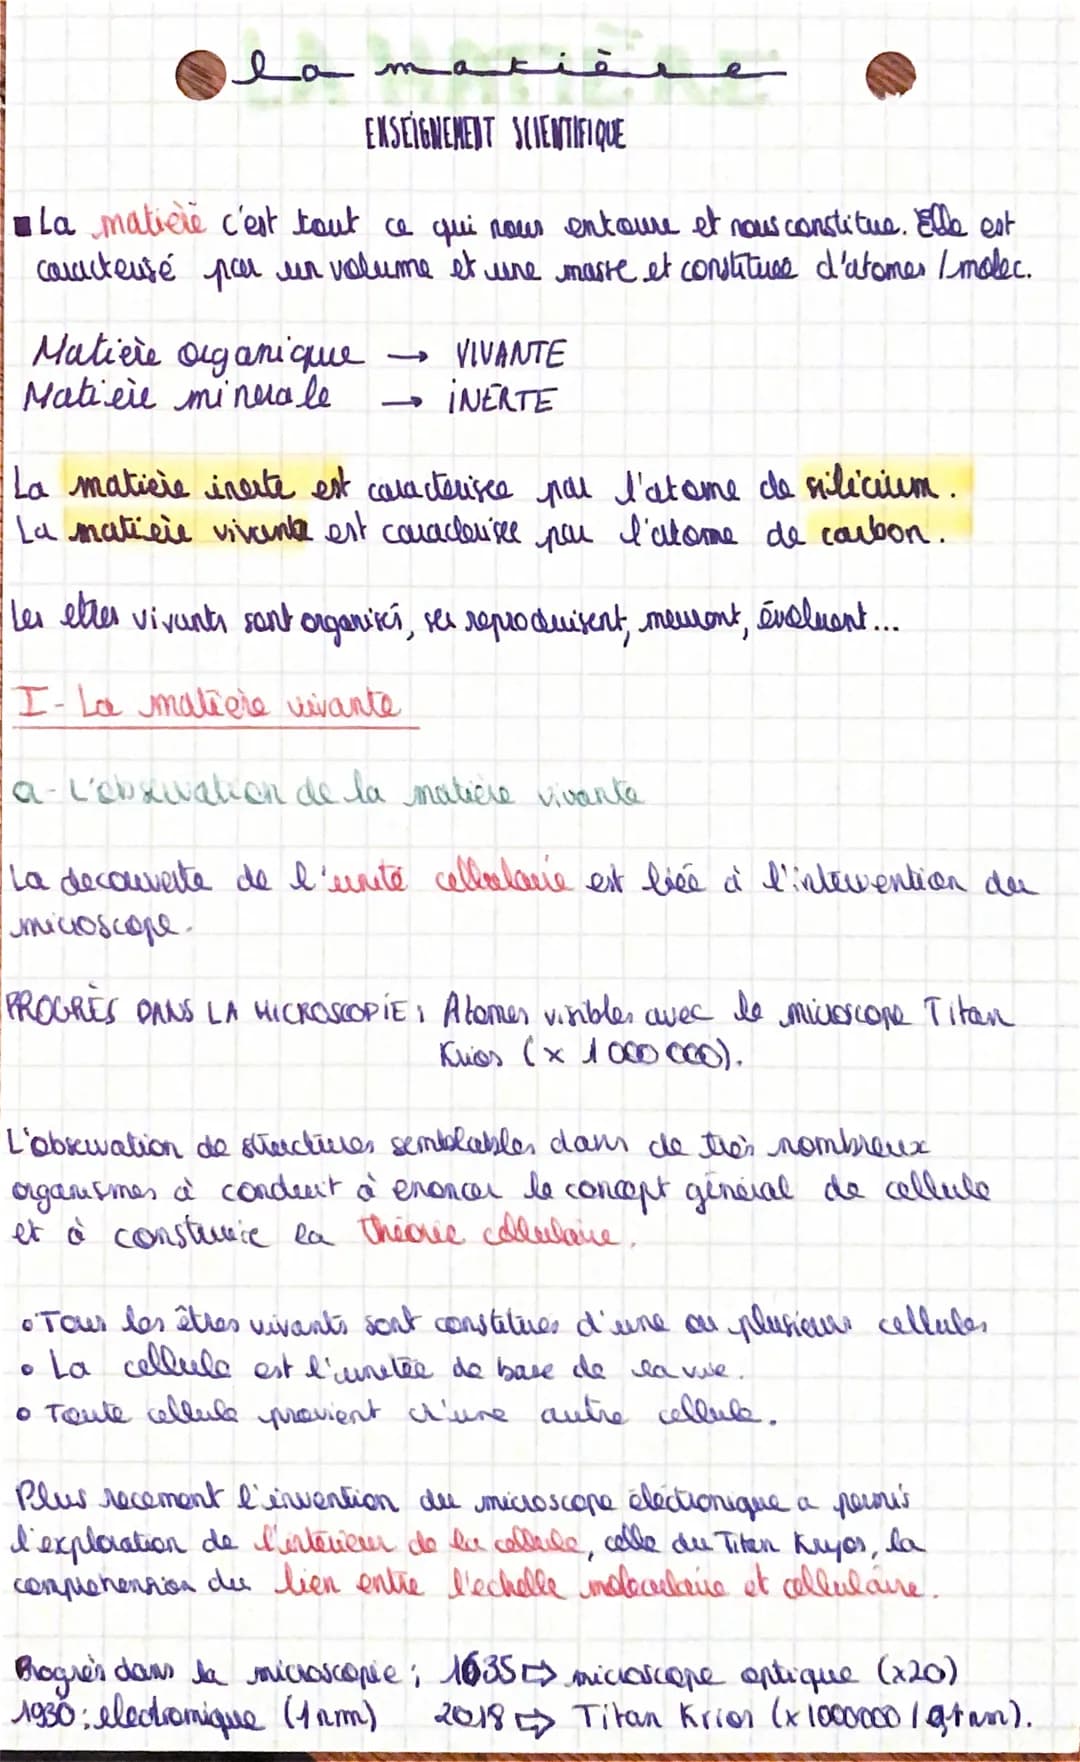 la matière
ENSEIGNEMENT SCIENTIFIQUE
La matière c'est tout ce qui nous entoure et nous constitue. Elle est
caractensé par un volume et une masse et constituee d'atomes / molec.
Matière organique → VIVANTE
Matière minerale → INERTE
La matière inerte est caracterisee par l'atome de silicium.
La matière vivante est caracterisee par l'atome de carbon.
Les etres vivants sont organisés, ses reproduisent, meuront, évoluent...
I- La matière vivante
a- L'observation de la matière vivante
La decouverte de l'unité cellulaire est liéé à l'intervention du
microscope.
PROGRÈS DANS LA MICROSCOPIE : Atomes visibles avec le microscope Titan
Krios (x 1 000 000).
L'observation de structures semblables dans de très nombreux
organismes à conduit à enoncer le concept général de cellule
et à construire la théorie cellulaire.
• Tous les êtres vivants sont constitues d'une ou plusieurs cellules
• La cellule est l'unitée de base de la vie.
• Toute cellule provient d'une autre cellule.
Plus recement l'invention du microscope électronique a permis
l'exploration de l'intérieur de la cellule, celle du Titan Kryos, la
comprehension du lien entre l'echelle moleculaire et cellulaire.
Progrès dans la microscopie ; 1635 ⇨ microscope optique (x20)
1930 : electronique (1 nm) 2018 ⇨ Titan Krios (x 1000000 /